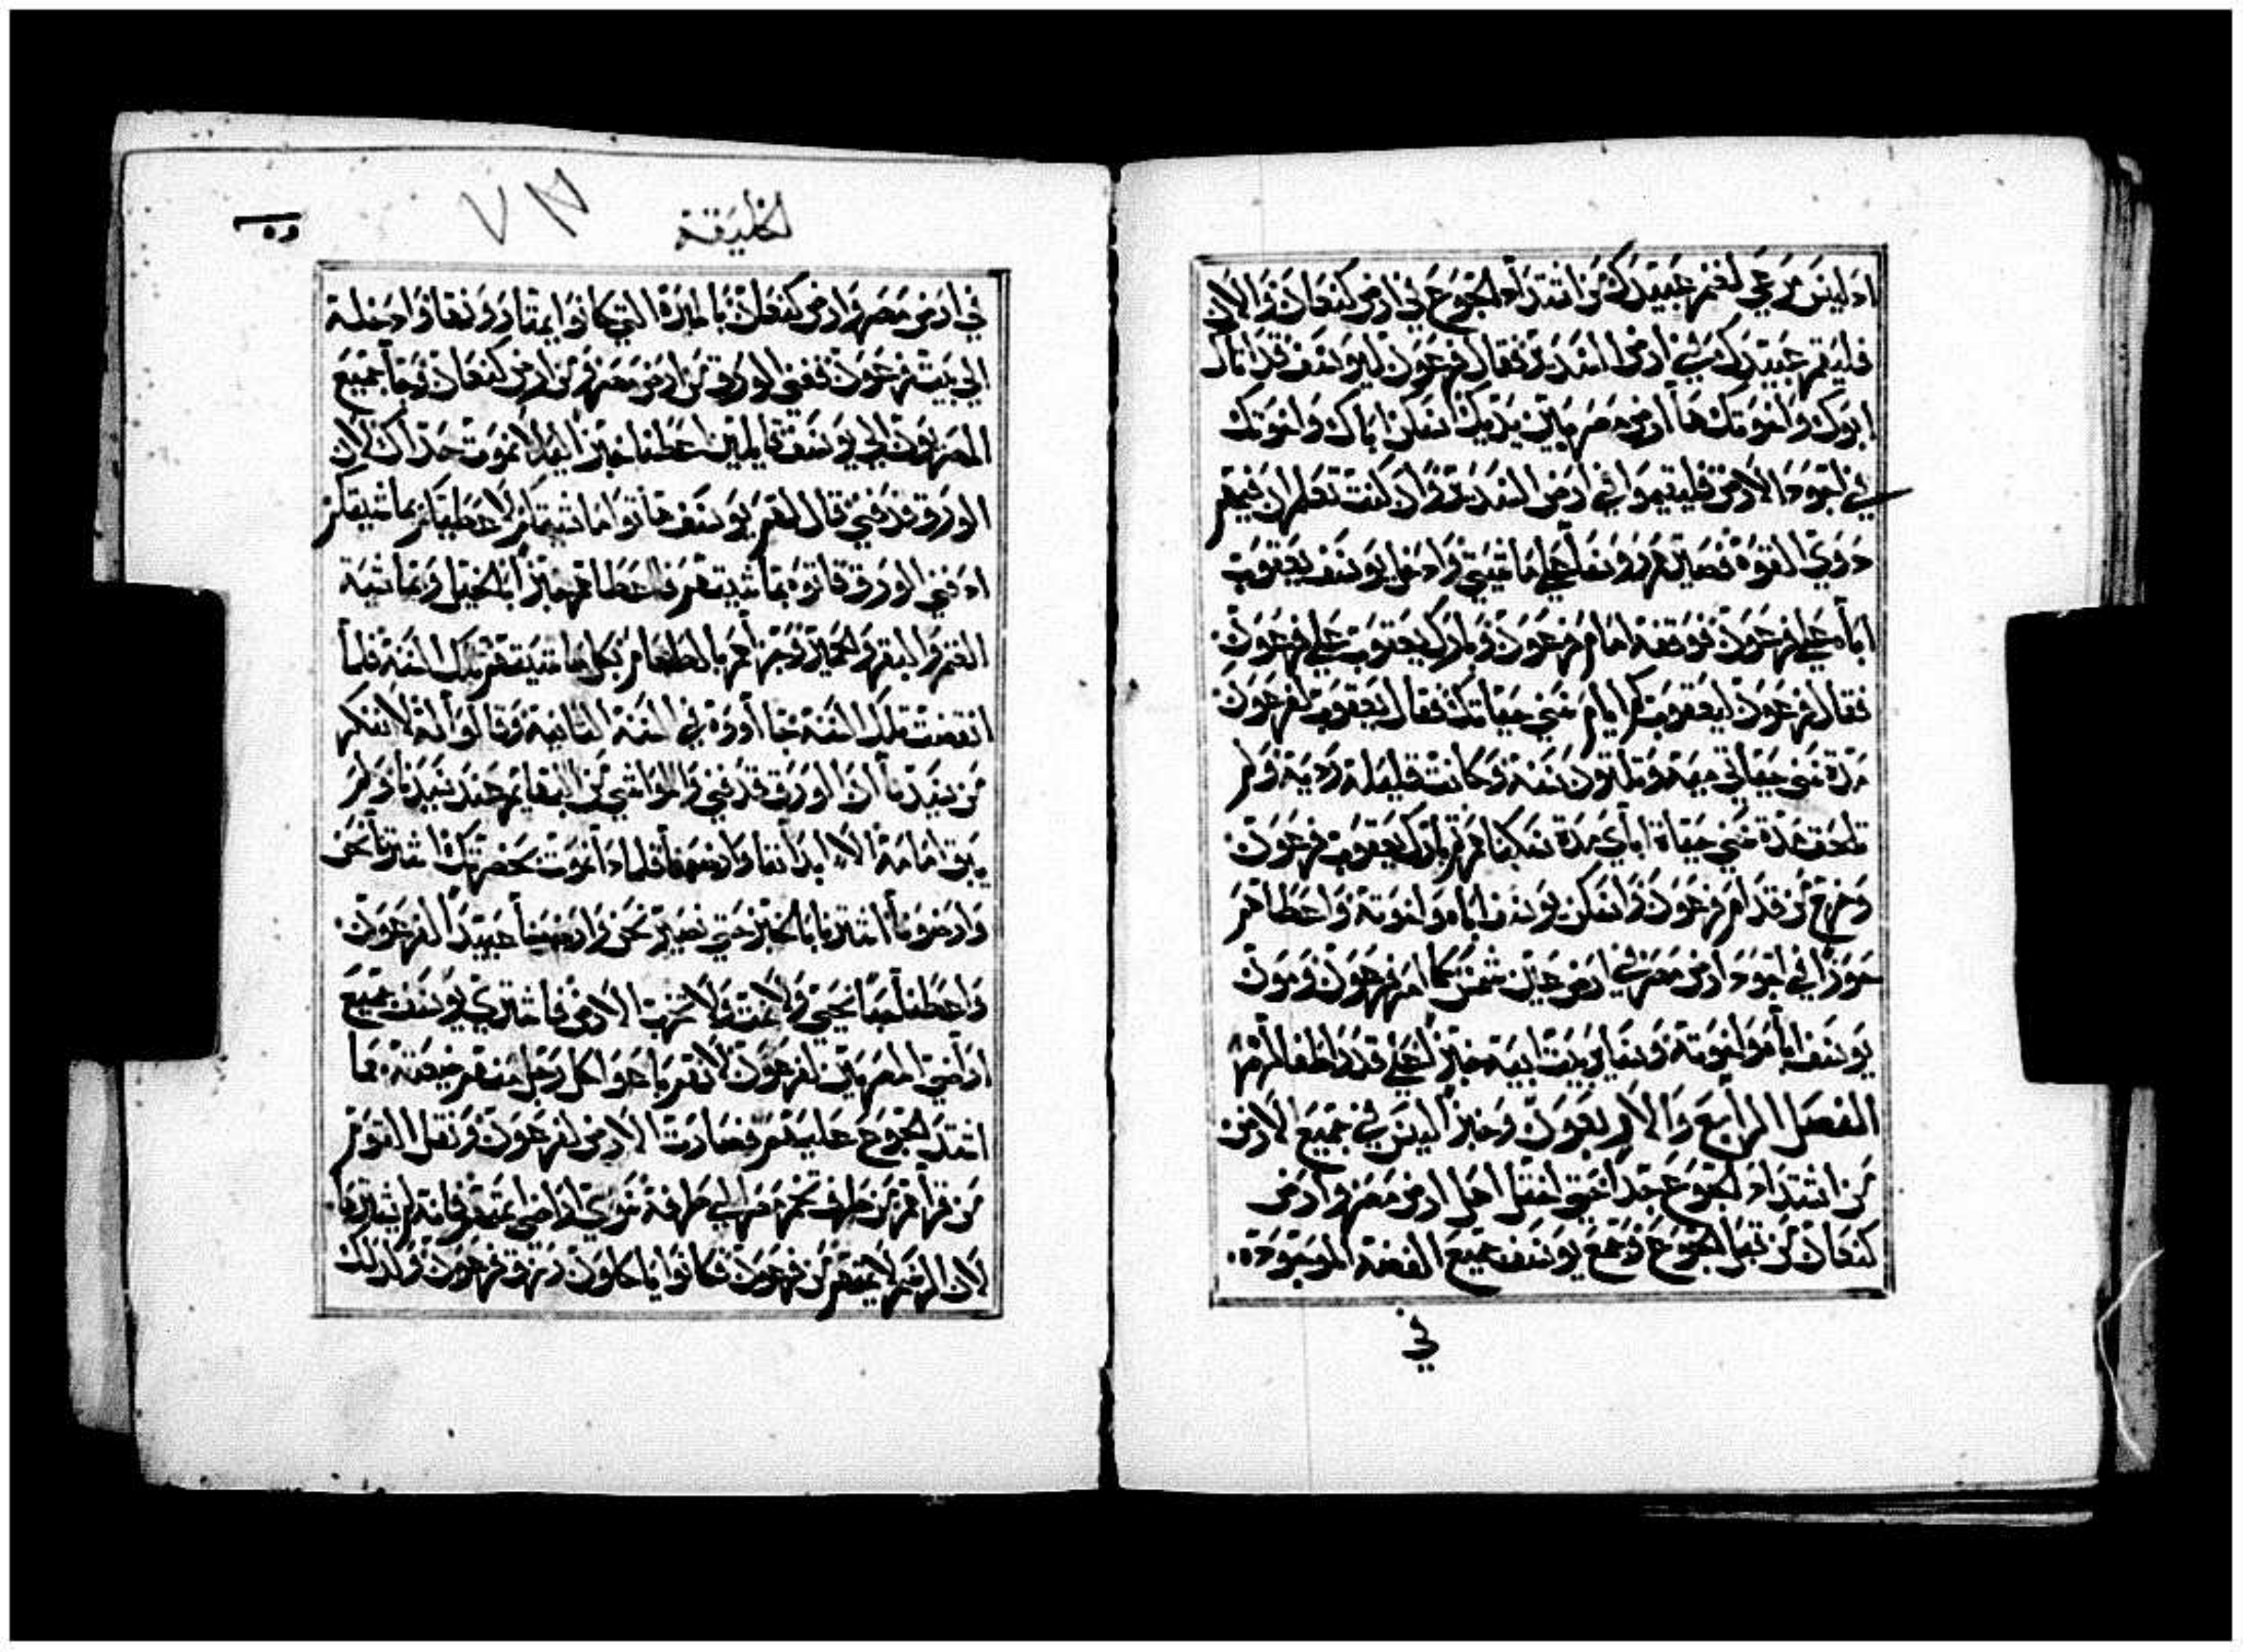 اذ ليس مرعي لغنم عبيدك من اشتداد الجوع في ارض كنعان والان
فليقم عبيدك في ارض السدير فقال فرعون ليوسف قد اتاك
ابوك واخوتك ها ارض مصر بين يديك اسكن اباك واخوتك
في اجود الارض فليقيموا في ارض السدير وان كنت تعلم ان فيهم
ذوي القوه فصيرهم روسا علي ماشيتي وادخل يوسف يعقوب
اباه علي فرعون فوقفه امام فرعون وبارك يعقوب علي فرعون
فقال فرعون ليعقوب كم ايام سني حياتك فقال يعقوب لفرعون
مدة سني حياتي ميه وثلثون سنة وكانت قليلة رديه ولم
تلحق مدة سني حياة اباي مدة سكناهم ثم بارك يعقوب فرعون
وخرج من قدام فرعون واسكن يوسف اباه واخوته واعطاهم
حوزا في اجود ارض مصر في ارض عين شمس كما امر فرعون ومون
يوسف اباه واخوته وساير بيت ابيه خبزا علي قدر اطفالهم
الفصل الرابع والاربعون وخبزا ليس في جميع الارض
من اشتداد الجوع جدا حتي اختل اهل ارض مصر وارض
كنعان من قبل الجوع وجمع يوسف جميع الفضه الموجوده
في
الخليقة
٧٨
في ارض مصر وارض كنعان بالميرة التي كانوا يمتارونها وادخله
الي بيت فرعون ففني الورق من ارض مصر ومن ارض كنعان وجا جميع
المصريون الي يوسف قايلين اعطنا خبزا ليلا نموت حداك لان
الورق قد فني قال لهم يوسف هاتوا ماشيتكم لاعطيكم بماشيتكم
اذ فني الورق فاتوه بماشيتهم فاعطاهم خبزا بالخيل وبماشية
الغنم والبقر والحمير وجزاهم بالطعام بكل ماشيتهم تلك السنة فلما
انقضت تلك السنه جا اووه في السنه الثانية وقالوا له لا ننكر
من سيدنا ان الورق قد فني والمواشي من البهايم عند سيدنا ولم
يبق امامه الا ابداننا وارضنا فلماذا نموت بحضرتك اشترنا نحن
وارضونا اشترنا بالخبز حتي نصير نحن وارضنا عبيدا لفرعون
واعطنا حبا نحيي ولا نمت ولا تخرب الارض فاشتري يوسف جميع
اراضي المصريين لفرعون لانهم باعوا كل رجل منهم ضيعته مما
اشتد الجوع عليهم فصارت الارض لفرعون ونقل القوم
من قراهم من طرف تخم مصر الي طرفه سوي اراضي ايمتهم فانه لم يشترها
لان الرسم لايمتهم من فرعون فكانوا ياكلون رزق فرعون ولذلك